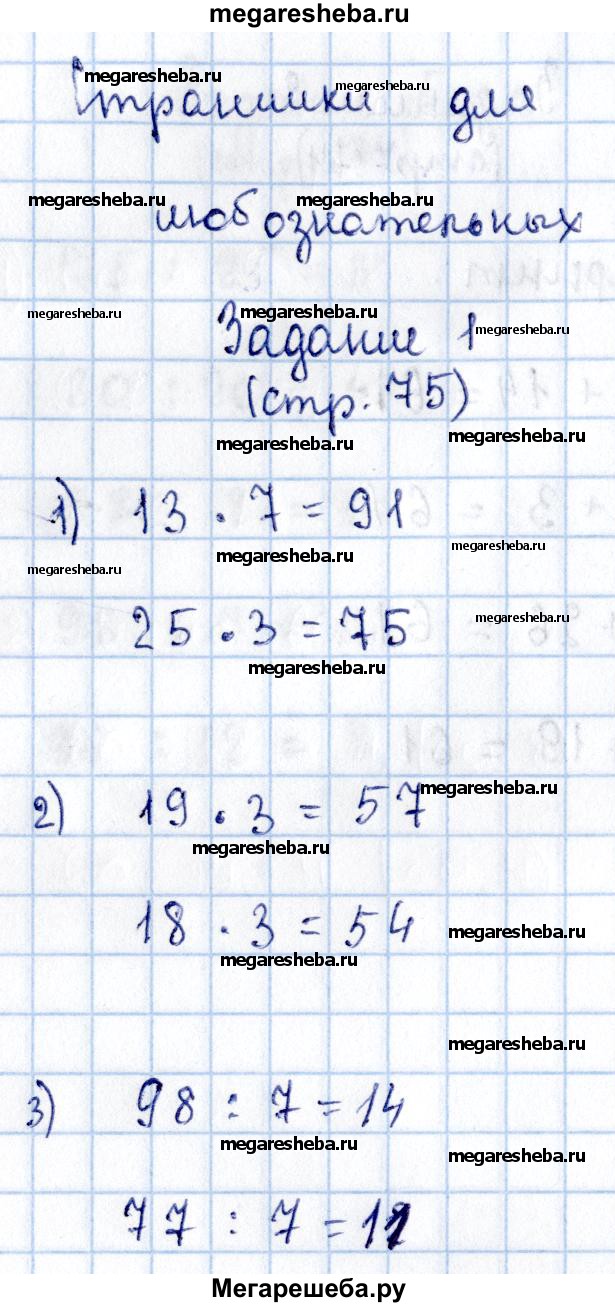 megaresheba.ru
megaresheba.ru
megaresheba.ru
Странички для
megaresheba.ru
megaresheba.ru
любознательных
megaresheba.ru
megaresheba.ru
megaresheba.ru
Задание 1
(стр. 75)
megaresheba.ru
megaresheba.ru
1) 13 · 7 = 91
megaresheba.ru
megaresheba.ru
megaresheba.ru
25 · 3 = 75
megaresheba.ru
megaresheba.ru
megaresheba.ru
2) 19 · 3 = 57
megaresheba.ru
18 · 3 = 54
megaresheba.ru
megaresheba.ru
megaresheba.ru
3) 98 : 7 = 14
megaresheba.ru
megaresheba.ru
77 : 7 = 11
Мегарешеба.ру